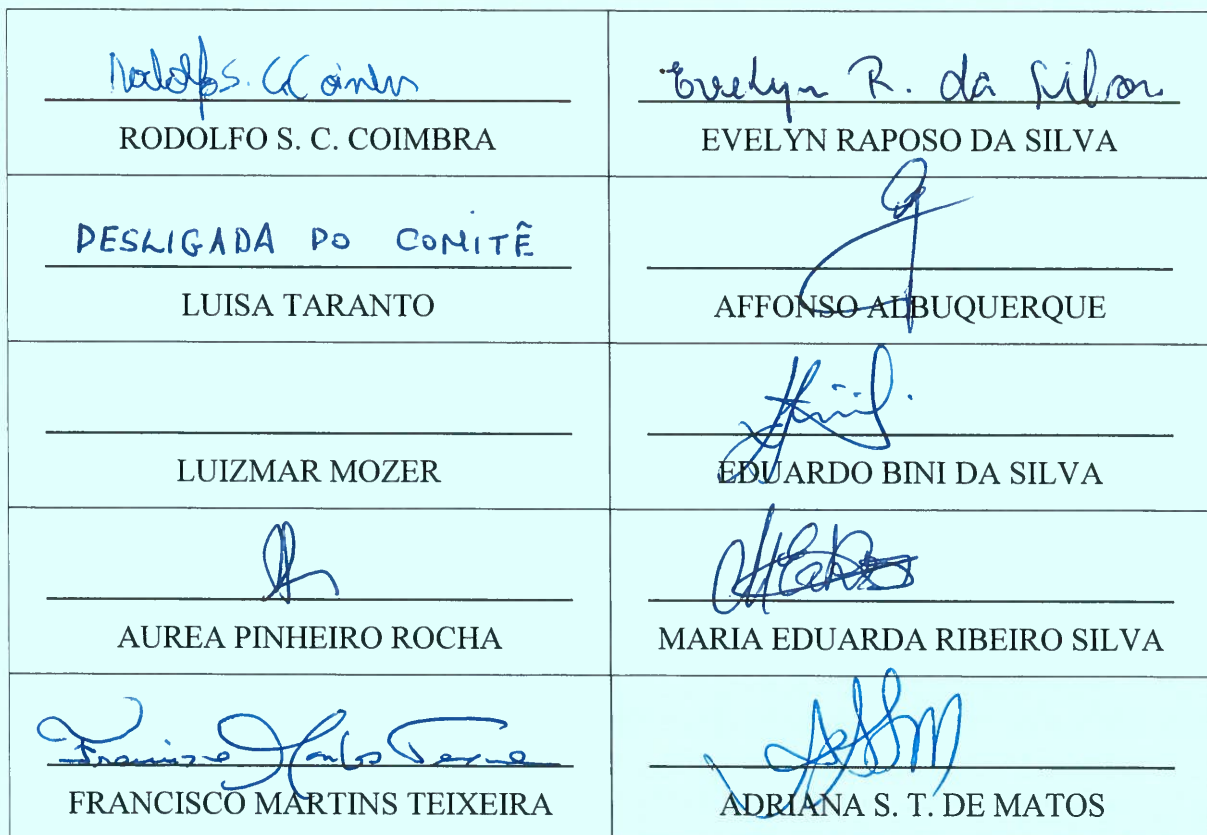 Rodolfo S. C. Coimbra
RODOLFO S. C. COIMBRA
Evelyn R. da Silva
EVELYN RAPOSO DA SILVA
DESLIGADA DO COMITÊ
LUISA TARANTO
AFFONSO ALBUQUERQUE
LUIZMAR MOZER
EDUARDO BINI DA SILVA
AUREA PINHEIRO ROCHA
MARIA EDUARDA RIBEIRO SILVA
Francisco Martins Teixeira
FRANCISCO MARTINS TEIXEIRA
ADRIANA S. T. DE MATOS